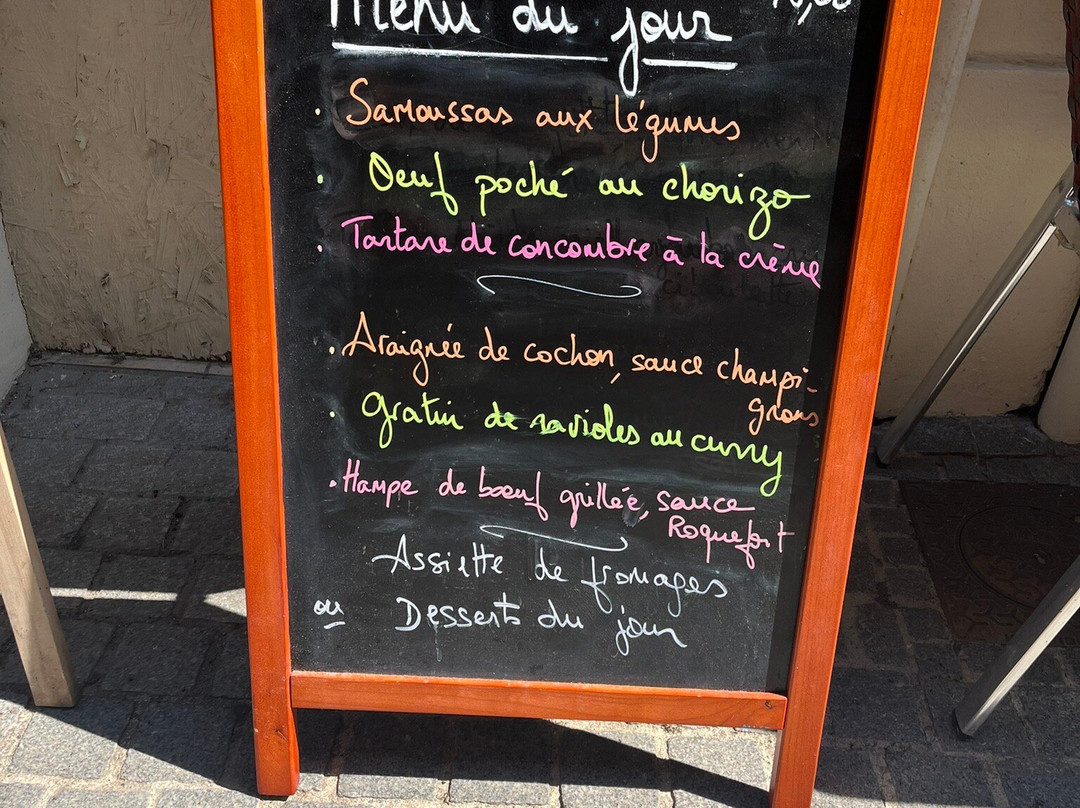 Menu du jour
. Samoussas aux légumes
. Oeuf poché au chorizo
. Tartare de concombre à la crème
. Araignée de cochon, sauce champi-
gnons
. Gratin de ravioles au curry
. Hampe de bœuf grillée, sauce
Roquefort
Assiette de fromages
ou Desserts du jour